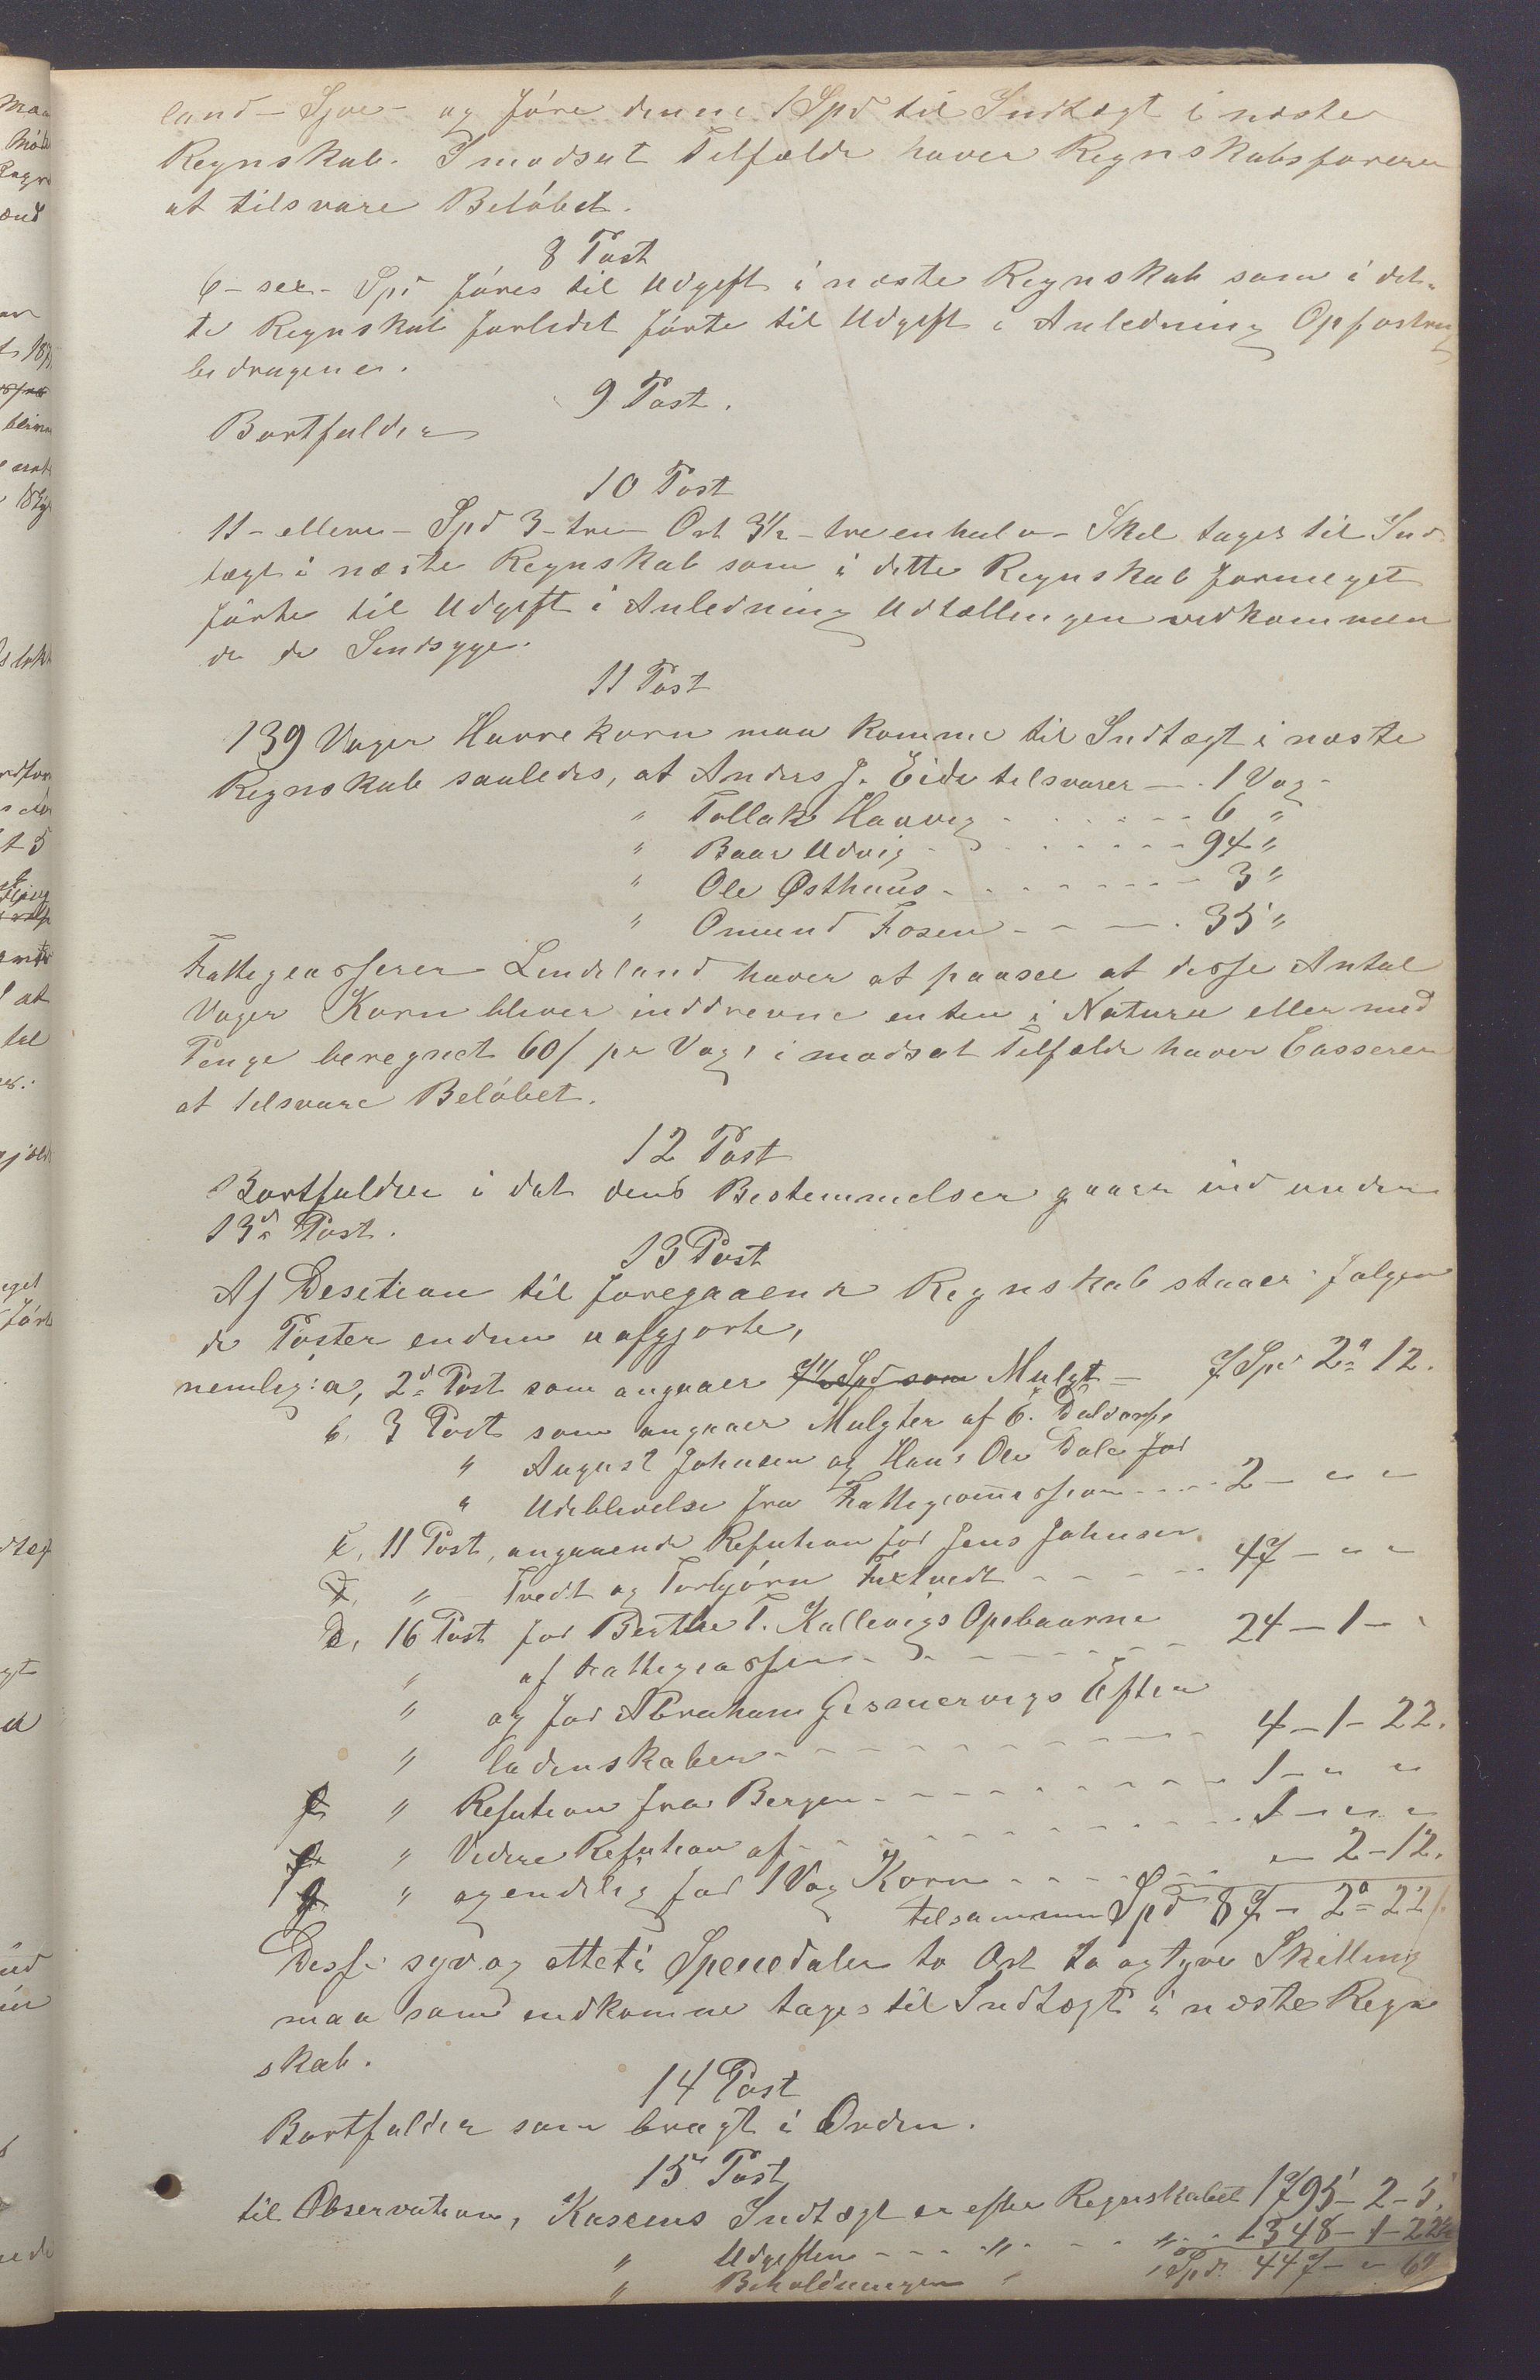 land - Syv - og føre denne 1 Spd til Indtægt i næste
Regnskab. I modsat Tilfælde haver Regnskabsføreren
at tilsvare Beløbet.
8 Post
6 - sex - Spd føres til Udgift i næste Regnskab som i det-
te Regnskab forlidet førte til Udgift i Anledning Opfostrings
bidragene.
9 Post.
Bortfalder
10 Post
11 - elleve - Spd 3 - tre - Ort 3½ - tre en halv - Skil tages til Ind
tægt i næste Regnskab som i dette Regnskab formeget
førte til Udgift i Anledning Udtællingen vedkommen
de de Sindsyge.
11 Post
139 Voger Havrekorn maa komme til Indtægt i næste
Regnskab saaledes, at Anders J. Eide tilsvarer - . 1 Vog -
" Tollak Haavig - - - - - 6 "
" Baar Udvig - - - - - 94 "
" Ole Østhuus - - - - - 3 "
" Omund Fosen - - - . 35 "
Fattigcasserer Lindeland haver at paasee at disse Antal
Voger Korn bliver inddrevne enten i Natura eller med
Penge beregnet 60/ pr Vog, i modsat Tilfælde haver Casserer
at tilsvare Beløbet.
12 Post
Bortfalder i det dens Bestemmelser gaaer ind under
13de Post.
13 Post
Af Desition til foregaaende Regnskab staaer følgen
de Poster endnu uafgjorte,
nemlig: a, 2d Post som angaaer 7½ Spd som Mulgt - 7 Spd 2o 12.
b, 3 Post som angaaer Mulgter af C. Daldorph,
" August Johnsen og Hans Ole Dale for
" Udeblivelse fra Fattigcommission - - - 2 - " "
c, 11 Post, angaaende Refution for Jens Johnsen
" Tvedt og Torbjørn Fuxtvedt - - - - 47 - " "
d, 16 Post for Berthe T. Kallevigs Opebaarne
" af Fattigcassen - - - - - 24 - 1 - "
" og for Abraham Gismervigs Efter
" ladenskaber - - - - - 4 - 1 - 22.
" Refution fra Bergen - - - - - 1 - " "
" Videre Refution af - - - - - 1 - " "
" og endelig for 1 Vog Korn - - - - " 2 - 12.
tilsammen Spd 87 - 2o - 22/.
Disse syv og otteti Speciedaler to Ort to og tyve Skilling
maa som indkomne tages til Indtægt i næste Regn
skab.
14 Post
Bortfalder som bragt i Orden.
15 Post
til Observation, Kassens Indtægt er efter Regnskabet 1795 - 2 - 5.
" Udgiften - - - " - - " - 1348 - 1 - 22½
" Beholdningen " " Spd. 447 - " 6½